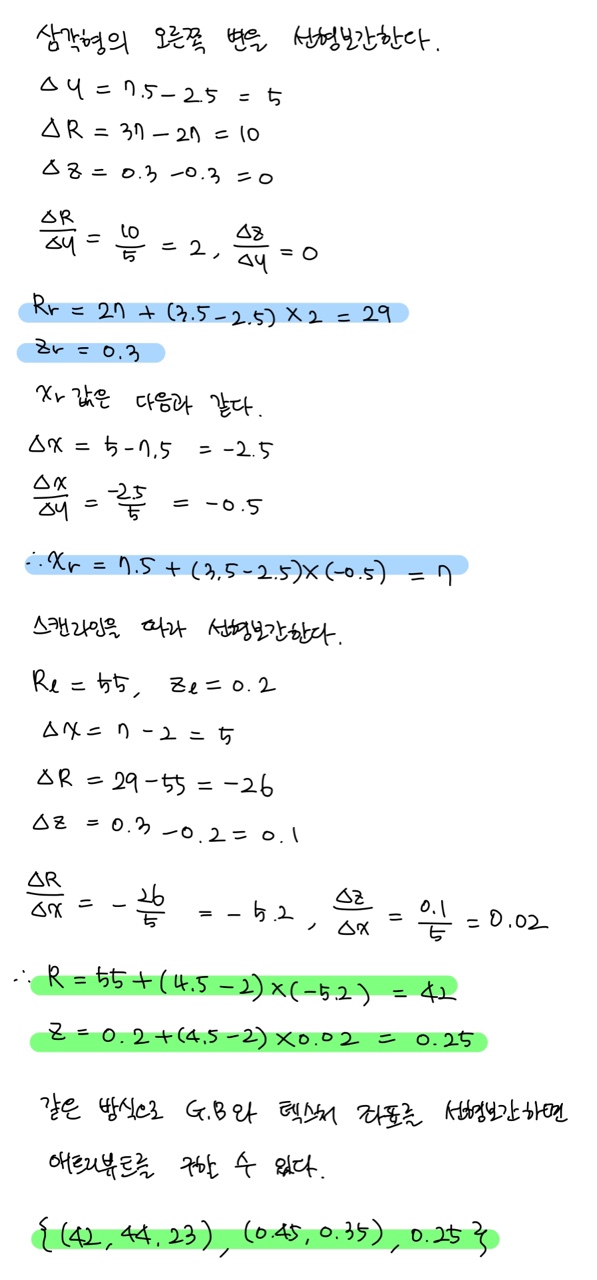 삼각형의 오른쪽 변을 선형보간한다.
Δy = 7.5 - 2.5 = 5
ΔR = 37 - 27 = 10
Δz = 0.3 - 0.3 = 0
ΔR/Δy = 10/5 = 2, Δz/Δy = 0
Rr = 27 + (3.5 - 2.5) × 2 = 29
Zr = 0.3
xr 값은 다음과 같다.
Δx = 5 - 7.5 = -2.5
Δx/Δy = -2.5/5 = -0.5
∴ xr = 7.5 + (3.5 - 2.5) × (-0.5) = 7
스캔라인을 따라 선형보간한다.
Rl = 55, Zl = 0.2
Δx = 7 - 2 = 5
ΔR = 29 - 55 = -26
Δz = 0.3 - 0.2 = 0.1
ΔR/Δx = - 26/5 = - 5.2, Δz/Δx = 0.1/5 = 0.02
∴ R = 55 + (4.5 - 2) × (-5.2) = 42
Z = 0.2 + (4.5 - 2) × 0.02 = 0.25
같은 방식으로 G.B와 텍스처 좌표를 선형보간하면
애트리뷰트를 구할 수 있다.
{(42, 44, 23), (0.45, 0.35), 0.25}